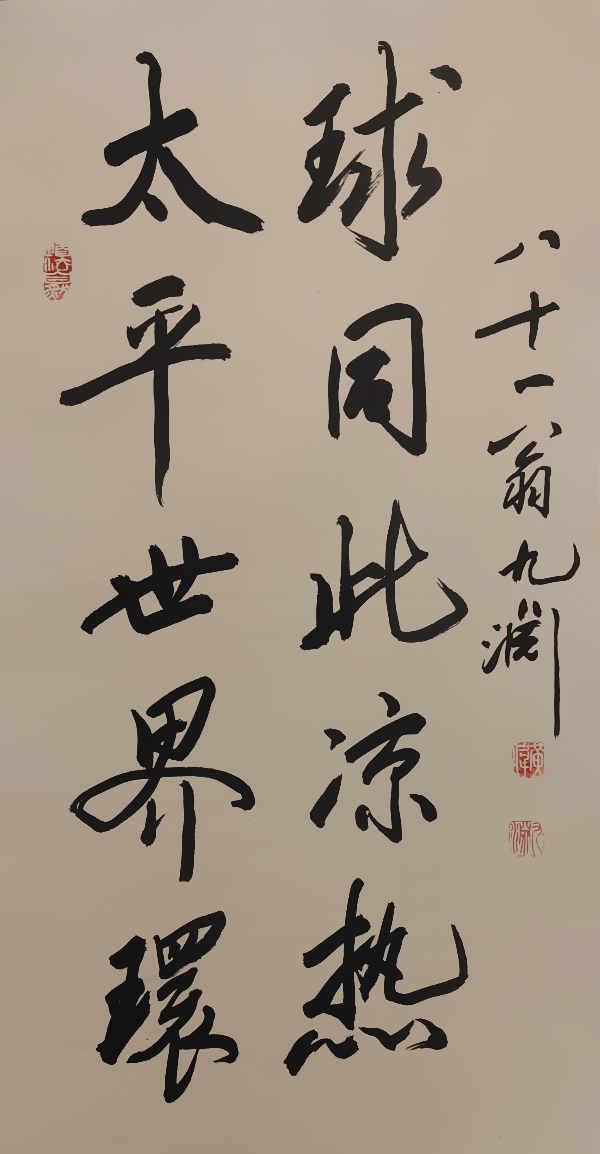 太平世界環
球同此凉热
八十一翁九淵